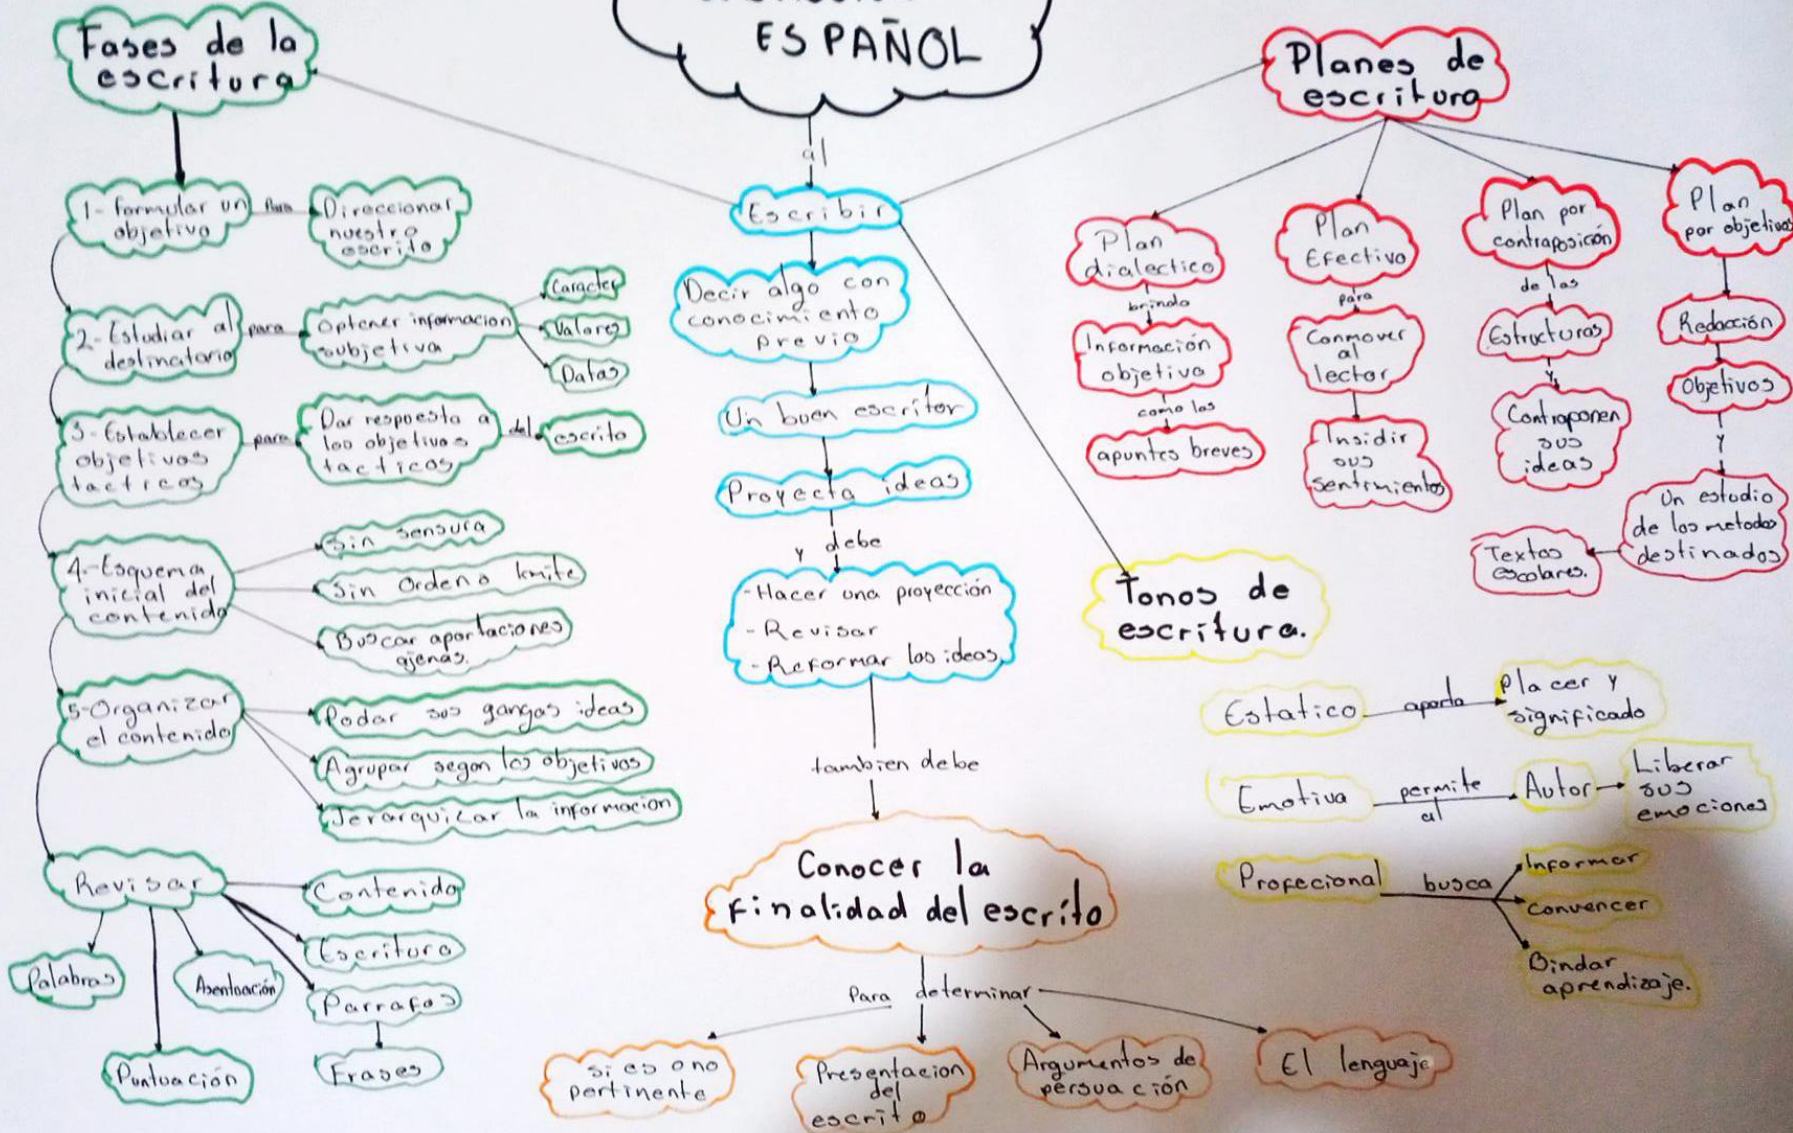 ESPAÑOL
al
Escribir
Decir algo con
conocimiento
previo
Un buen escritor
Proyecta ideas
y debe
- Hacer una proyección
- Revisar
- Reformar las ideas,
tambien debe
Conocer la
finalidad del escrito
Para determinar
si es o no
pertinente
Presentacion
del
escrito
Argumentos de
persuación
El lenguaje
Fases de la
escritura
1- formular un
objetivo
Para
Direccionar
nuestro
escrito
2- Estudiar al
destinatario
para
Optener informacion
subjetiva
Caracter
Valores
Datas
3- Establecer
objetivos
tacticos
para
Dar respuesta a
los objetivos
tacticos
del
escrito
4.- Esquema
inicial del
contenido
Sin sensura
Sin orden o limite
Buscar aportaciones
ajenas.
5- Organizar
el contenido
Podar sus gangas ideas
Agrupar segon los objetivos
Jerarquizar la informacion
Revisar
Contenido
Escritura
Parrafos
Frases
Palabras
Puntuación
Asentuación
Planes de
escritura
Plan
dialectico
brinda
Información
objetiva
como las
apuntes breves
Plan
Efectivo
para
Conmover
al
lector
Insidir
sus
sentimientos
Plan por
contraposición
de las
Estructuras
y
Contraponen
sus
ideas
Plan
por objetivos
Redacción
Objetivos
y
Un estudio
de los metodos
destinados
Textos
escolares.
Tonos de
escritura.
Estatico
aporta
Placer y
significado
Emotiva
permite
al
Autor
Liberar
sus
emociones
Profecional
busca
Informar
Convencer
Bindar
aprendizaje.